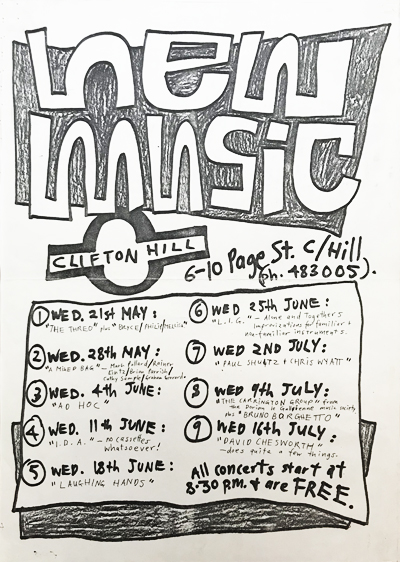 new
music
CLIFTON HILL
6-10 Page St. C/Hill
(ph. 483005).
1 WED. 21ST MAY:
"THE THREO" plus
2 WED. 28th MAY:
"A MIXED BAG" - Mark Pollard/Rainer
Linz/Brian Parrish/
3 WED. 4th JUNE:
"AD HOC"
4 WED. 11th JUNE:
"I.D.A." - no cassettes
whatsoever!
5 WED. 18th JUNE:
"LAUGHING HANDS"
6 WED 25th JUNE:
"L.I.G." - Alone and Together &
improvizations for familiar &
un-familiar instruments.
7 WED 2ND JULY:
"PAUL SHUTZ + CHRIS WYATT"
8 WED 9th JULY:
"THE CARRINGTON GROUP" from
the Dorian le Gallienne music society
"BRUNO BORGHETTO"
9 WED 16th JULY:
"DAVID CHESWORTH"
- does quite a few things.
All concerts start at
8·30 P.M. & are FREE.